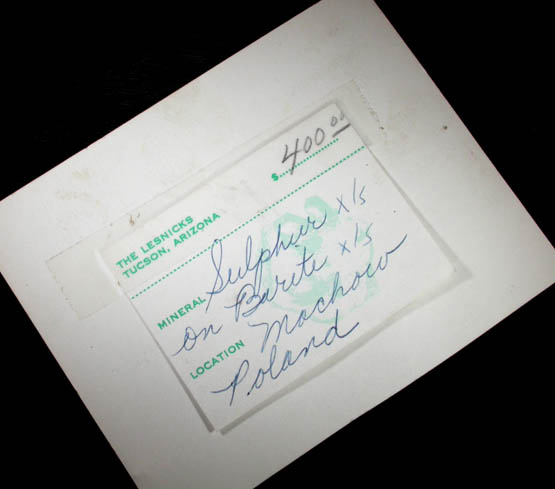 $ 400 00
THE LESNICKS
TUCSON, ARIZONA
MINERAL Sulphur x/s
on Barite x/s
LOCATION Machow
Poland